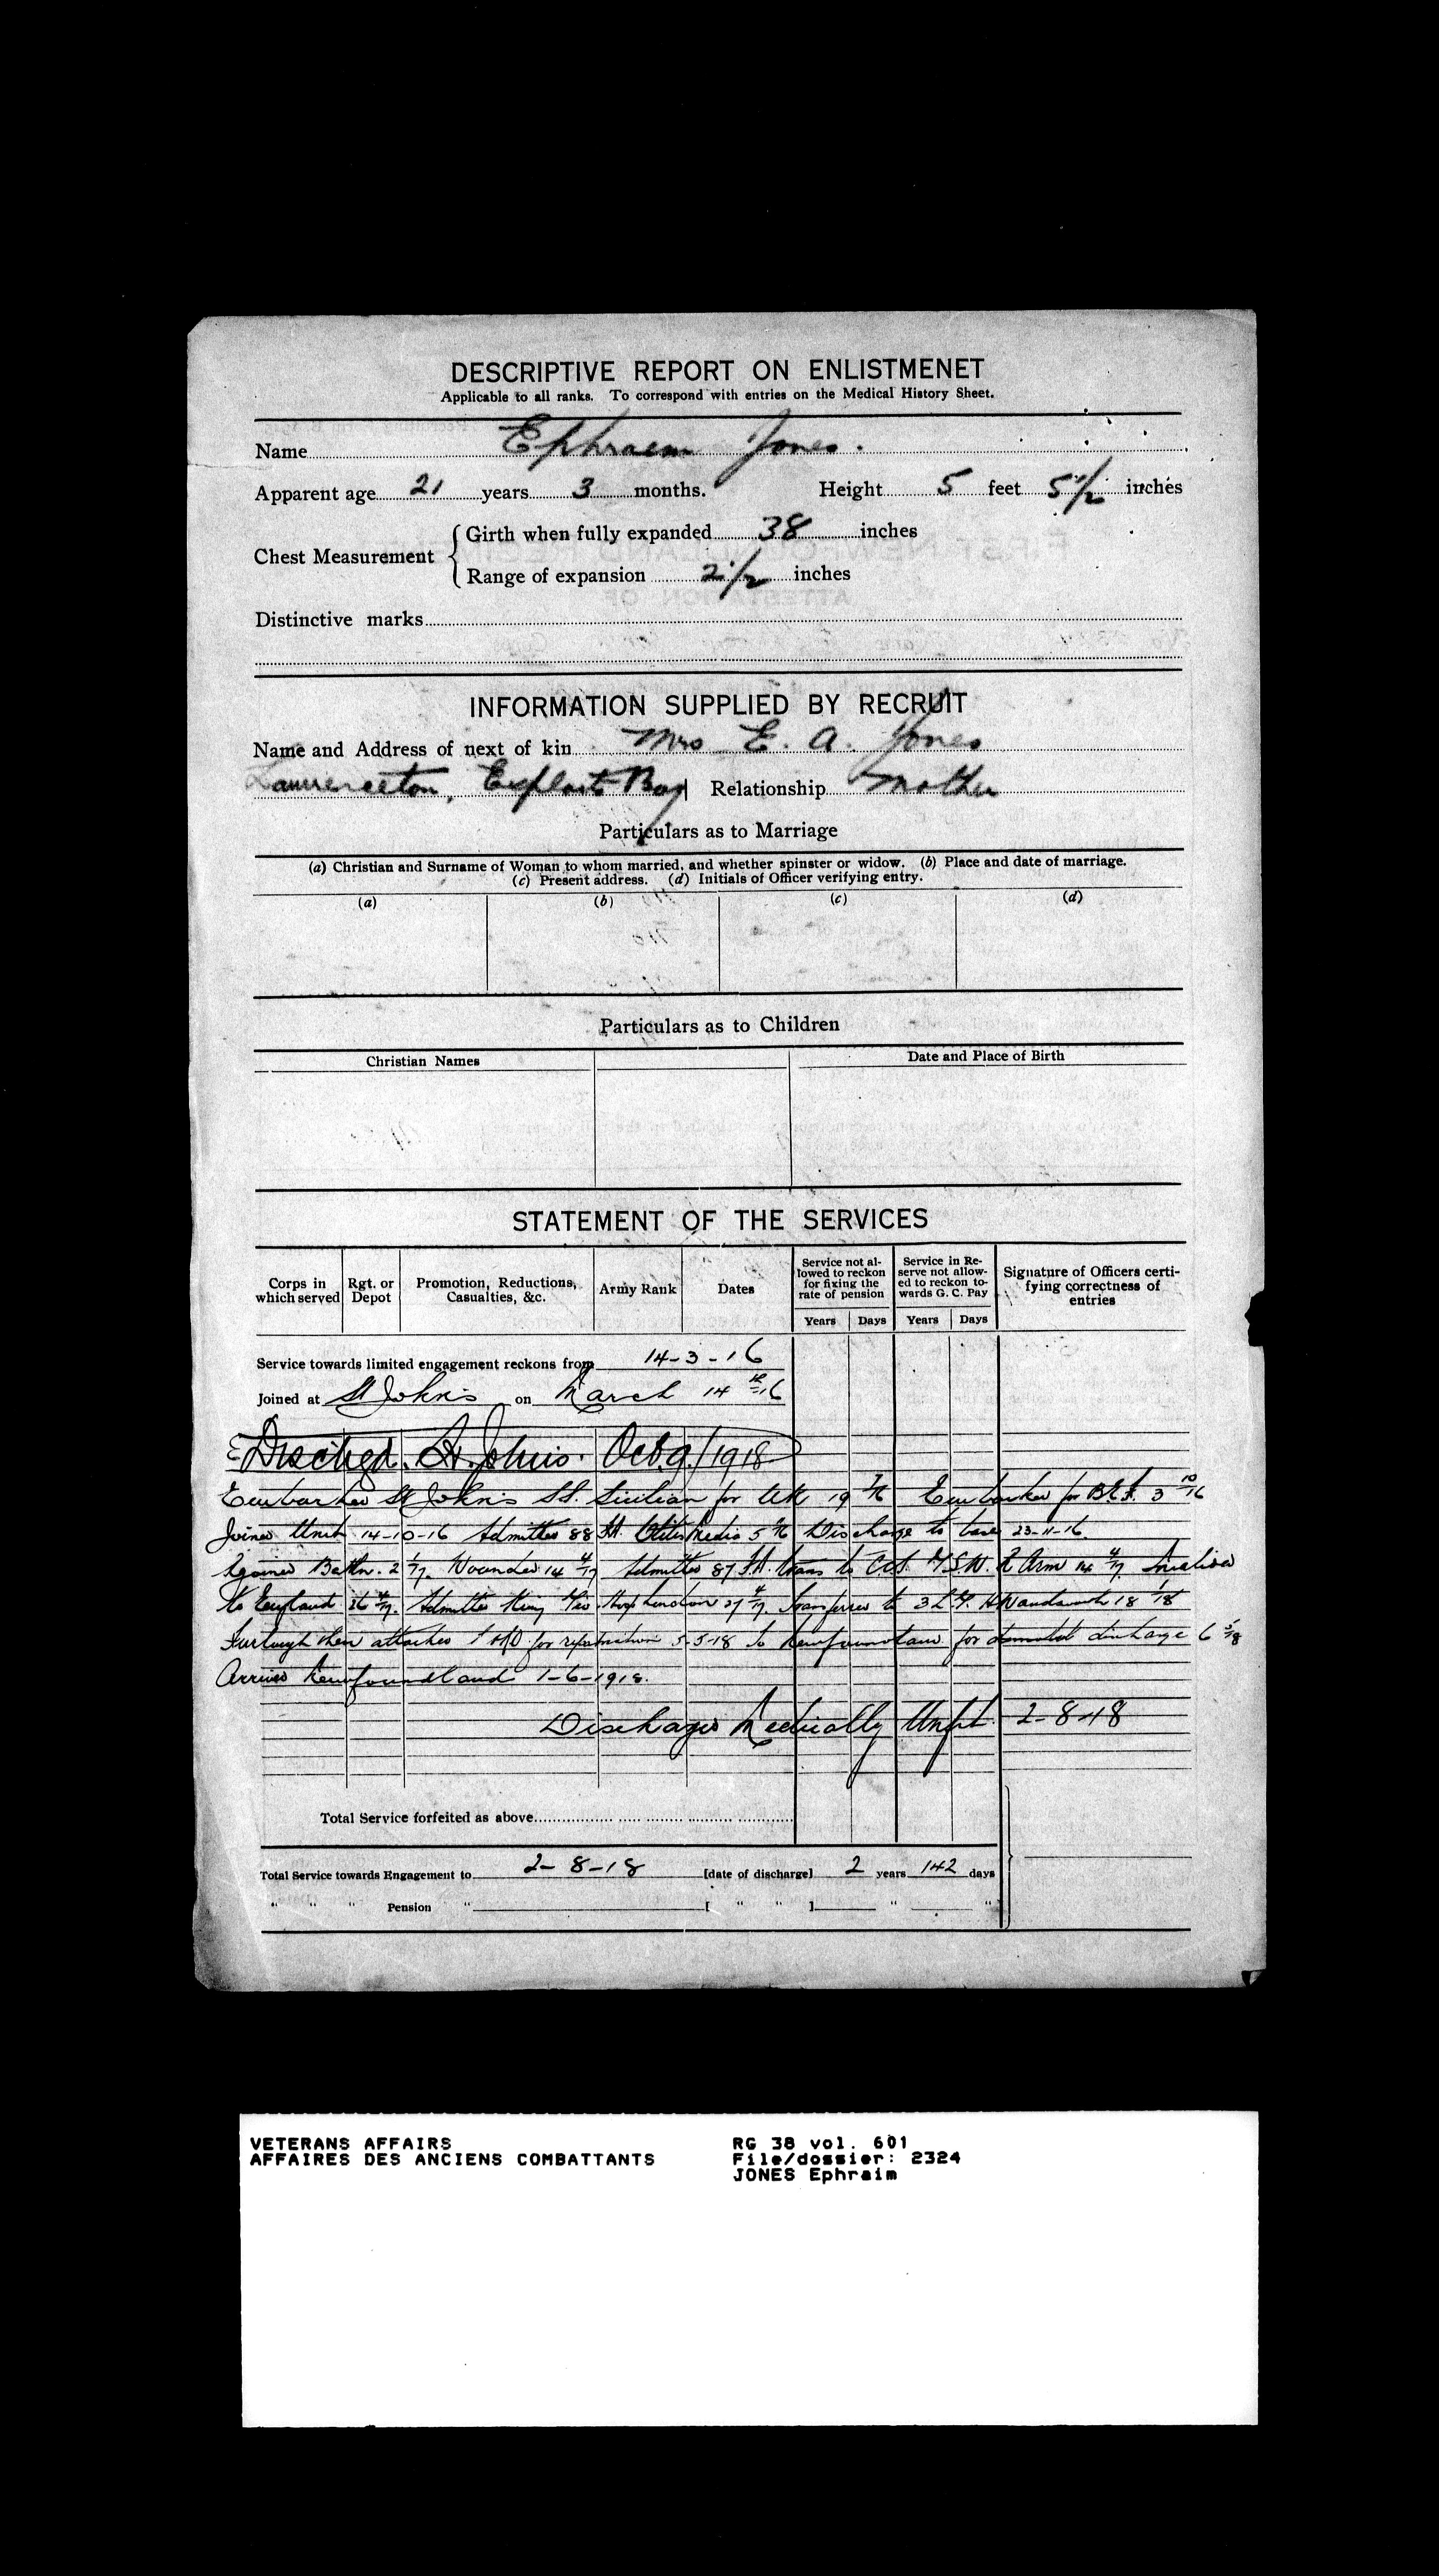 DESCRIPTIVE REPORT ON ENLISTMENET
Applicable to all ranks. To correspond with entries on the Medical History Sheet.
Name Ephraem Jones.
Apparent age 21 years 3 months. Height 5 feet 5 1/2 inches
Chest Measurement { Girth when fully expanded 38 inches
Range of expansion 2 1/2 inches
Distinctive marks
INFORMATION SUPPLIED BY RECRUIT
Name and Address of next of kin Mrs E. A. Jones
Lawrenceton, Exploits Bay Relationship Mother
Particulars as to Marriage
(a) Christian and Surname of Woman to whom married, and whether spinster or widow. (b) Place and date of marriage.
(c) Present address. (d) Initials of Officer verifying entry.
(a) (b) (c) (d)
Particulars as to Children
Christian Names Date and Place of Birth
STATEMENT OF THE SERVICES
Corps in which served Rgt. or Depot Promotion, Reductions, Casualties, &c. Army Rank Dates Service not allowed to reckon for fixing the rate of pension Service in Reserve not allowed to reckon towards G. C. Pay Signature of Officers certifying correctness of entries
Years Days Years Days
Service towards limited engagement reckons from 14-3-16
Joined at St John's on March 14th -16
Dischgd. St. John's. Oct. 9/1918
Embarked St John's SS. Sicilian for UK 19 7/16 Embarked for B.E.F. 3 10/16
Joined Unit 14-10-16 Admitted 88 FA. Otitis Media 5 11/16 Discharge to base 23-11-16.
Rejoined Battn. 2 1/17. Wounded 14 4/17 Admitted 87 F.A. trans to C.C.S. G.S.W. R Arm 14 4/17 Invalided
to England 26 4/17. Admitted King Geo. Hosp London 27 4/17. Transferred to 3 L.G. H Wandsworth 18 1/18
Furlough then attached for repatriation 5-5-18 to Newfoundland for discharge 6 5/18
Arrived Newfoundland 1-6-1918.
Discharged Medically Unfit. 2-8-18
Total Service forfeited as above
Total Service towards Engagement to 2-8-18 [date of discharge] 2 years 142 days
" " " Pension " [ " " ] " "
VETERANS AFFAIRS RG 38 vol. 601
AFFAIRES DES ANCIENS COMBATTANTS File/dossier: 2324
JONES Ephraim